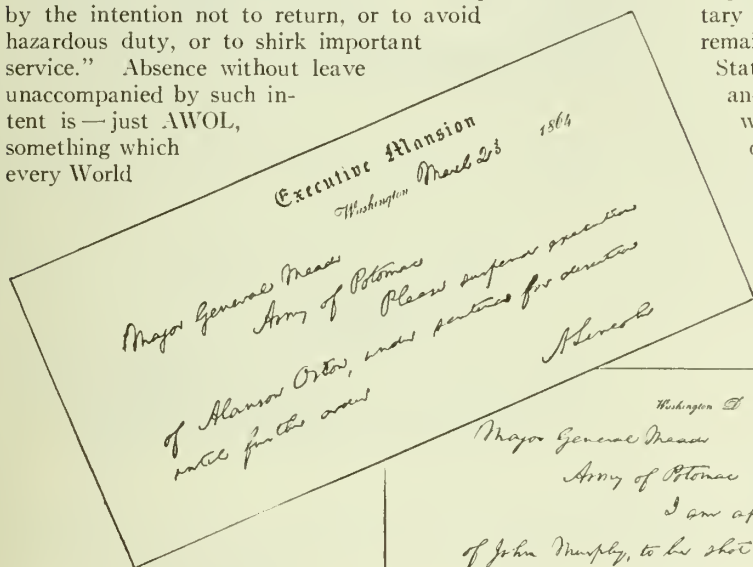 by the intention not to return, or to avoid
hazardous duty, or to shirk important
service." Absence without leave
unaccompanied by such in-
tent is — just AWOL,
something which
every World
tary
remai
Stat
an
w
Executive Mansion
Washington March 23 1864
Major General Meade
Army of Potomac
Please suspend execution
of Alanson Orton, under sentence for desertion
until further order
A Lincoln
Washington D
Major General Meade
Army of Potomac
I am ap
of John Murphy, to be shot